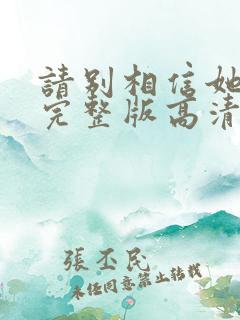 請别相信她
完整版高清
張丕民
未任同意禁止转载